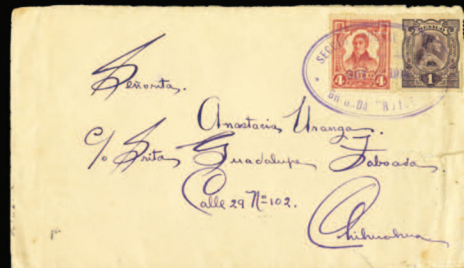 4 4
1
Señorita.
Anastacia Uranga.
c/o Srita Guadalupe Taboada.
Calle 29 Nº 102.
Chihuahua